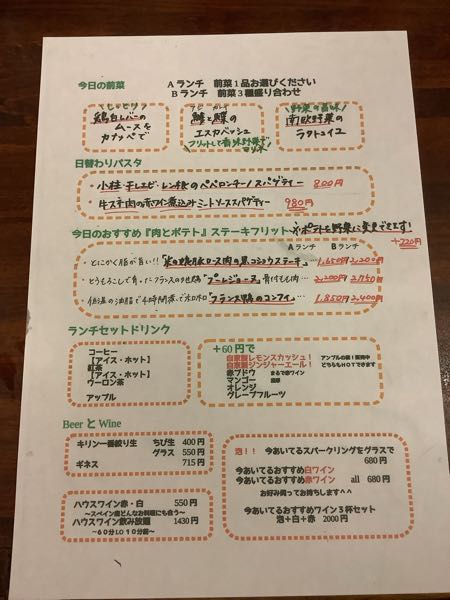 今日の前菜
Aランチ 前菜1品お選びください
Bランチ 前菜3種盛り合わせ
しっとり
鶏白レバーの
ムースを
カナッペで
アジ
鯵と鰹の
エスカベッシュ
フリットして香味野菜で
野菜の旨味
南欧野菜の
ラタトゥイユ
日替わりパスタ
・小柱・干しエビ・レンコンのペペロンチーノスパゲティー 800円
・牛スネ肉の赤ワイン煮込みミートソーススパゲティー 980円
今日のおすすめ『肉とポテト』ステーキフリット
ポテトを野菜に変更できます!
+220円
Aランチ Bランチ
・とにかく脂が旨い!! ロース肉の黒コショウステーキ 1,650円 2,200円
・とうもろこしで育ったフランスの 「プーレジョーヌ」骨付もも肉 2,200円 2,750
・低温の油脂で4時間煮てホロホロ「フランス鴨のコンフィ」 1,850円 2,400円
ランチセットドリンク
コーヒー
【アイス・ホット】
紅茶
【アイス・ホット】
ウーロン茶
アップル
+60円で
自家製レモンスカッシュ!
自家製ジンジャーエール!
アンプルの販!販売中
どちらもHOTできます
赤ブドウ まるで赤ワイン
マンゴー 濃厚
オレンジ
グレープフルーツ
Beer と Wine
キリン一番絞り生 ちび生 400円
グラス 550円
ギネス 715円
ハウスワイン赤・白 550円
~スペイン産どんなお料理にも合う~
ハウスワイン飲み放題 1430円
~60分LO10分前~
泡!! 今あいてるスパークリングをグラスで
680円
今あいてるおすすめ白ワイン
今あいてるおすすめ赤ワイン all 680円
お好み伺ってお持ちします^^
今あいてるおすすめワイン3杯セット
泡+白+赤 2000円